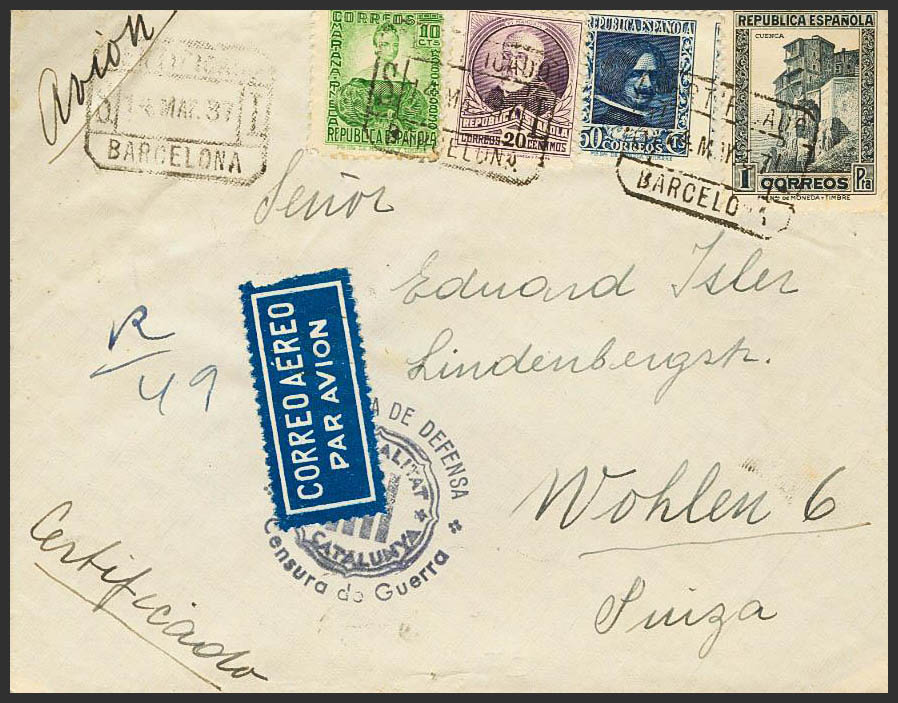 Avión
14 MAR. 37
BARCELONA
CORREOS
10
CTS
MARIANA
REPUBLICA ESPAÑOLA
REPUBLICA ESPAÑOLA
CORREOS 20 CENTIMOS
REPUBLICA ESPAÑOLA
50 CORREOS CTS
BARCELONA
REPUBLICA ESPAÑOLA
CUENCA
1 CORREOS Pta
DE MONEDA Y TIMBRE
Señor
Eduard Isler
Lindenbergstr.
Wohlen 6
Suiza
R
49
CORREO AÉREO
PAR AVION
DE DEFENSA
CATALUNYA
Censura de Guerra
Certificado